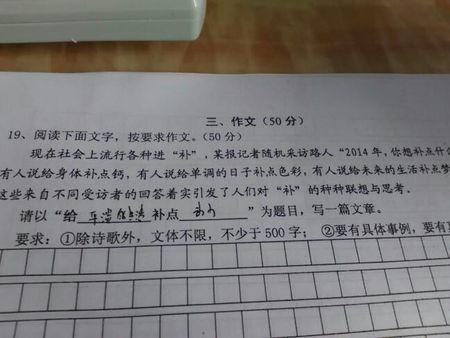 三、作文（50分）
19、阅读下面文字，按要求作文。（50分）
现在社会上流行各种进“补”，某报记者随机采访路人“2014年，你想补点什
有人说给身体补点钙，有人说给单调的日子补点色彩，有人说给未来的生活补点梦
这些来自不同受访者的回答着实引发了人们对“补”的种种联想与思考。
请以“给 补点 ”为题目，写一篇文章。
要求：①除诗歌外，文体不限，不少于500字；②要有具体事例，要有